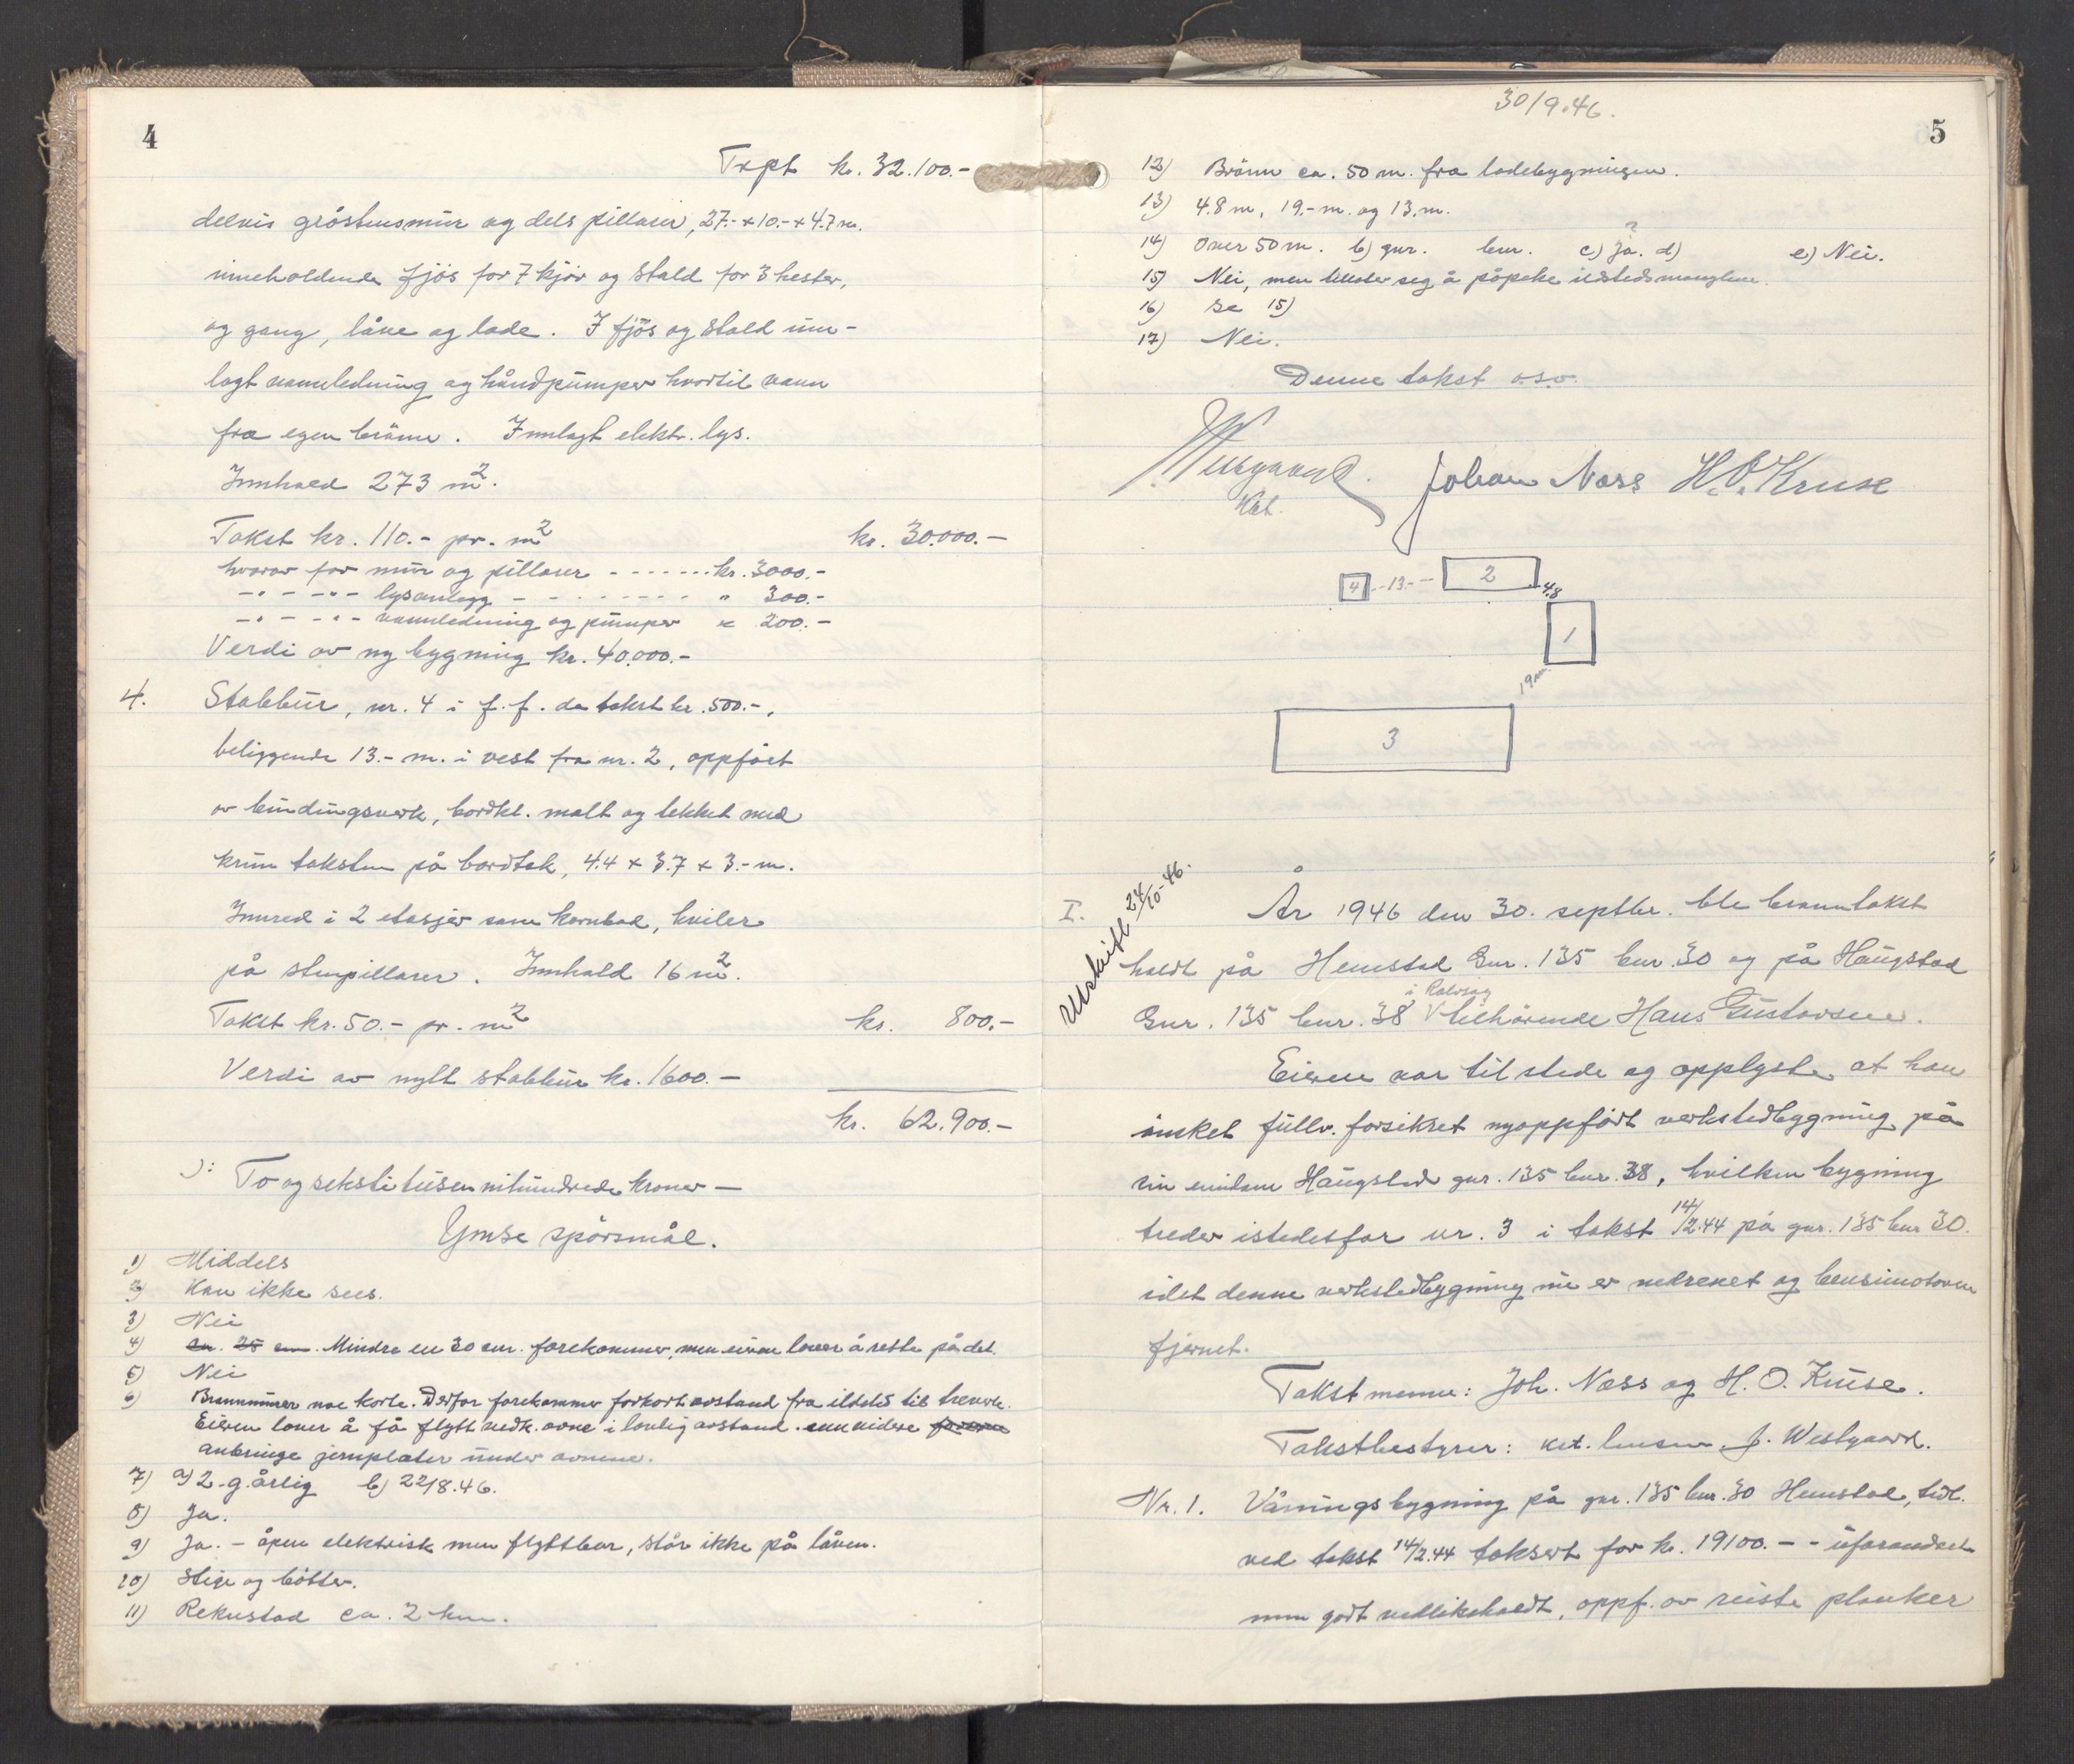 4
Trpt kr. 32.100.-
delvis gråstensmur og dels pillarer, 27.- x 10.- x 4.7 m.
inneholdende fjös for 7 kjör og stald for 3 hester,
og gang, låve og lade. I fjös og stald inn-
lagt vannledning og håndpumper hvortil vann
fra egen brönn. Innlagt elektr. lys.
Innhold 273 m².
Takst kr. 110.- pr. m² kr. 30.000.-
hvorav for mur og pillarer - - - - - - kr. 3000.-
-"- - -"- lysanlegg - - - - - - - - " 300.-
-"- - -"- vannledning og pumper " 200.-
Verdi av ny bygning kr. 40.000.-
4. Stabbur, nr. 4 i f.f. da takst kr. 500.-,
beliggende 13.- m. i vest fra nr. 2, oppfört
av bindingsverk, bordkl. malt og tekket med
krum taksten på bordtak, 4.4 x 3.7 x 3.- m.
Innred i 2 etasjer som kornbod, hviler
på stenpillarer. Innhold 16 m².
Takst kr. 50.- pr. m² kr. 800.-
Verdi av nytt stabbur kr. 1600.-
kr. 62.900.-
ɔ: To og seksti tusen nihundrede kroner —
Ymse spörsmål.
1) Middels
2) Kan ikke sees.
3) Nei
4) ca. 25 cm. Mindre en 30 cm. forekommer, men eieren lover å rette på det.
5) Nei
6) Brannmurer noe korte. Derfor forekommer for kort avstand fra ildsted til treverk.
Eieren lover å få flytt vedk. ovne i lovlig avstand. enn videre
anbringe jernplater under ovnene.
7) a) 2. g. årlig b) 22/8.46.
8) Ja.
9) Ja. - åpen elektrisk men flyttbar, står ikke på låven.
10) Stige og bötter.
11) Rekustad ca. 2 km.
30/9.46.
5
12) Brönn ca. 50 m. fra ladebygningen.
13) 4.8 m, 19.- m. og 13. m.
14) Over 50 m. b) gnr. bnr. c) Ja. ? d) e) Nei.
15) Nei, men tillater seg å påpeke ildstedsmanglene.
16) Se 15)
17) Nei.
Denne takst o.s.v.
J. Westgaard. Johan Næss H.O. Kruse
Kst.
4 - - 13.- - - 2
4.8
1
19 m.
3
Utskrift 24/10-46.
I. År 1946 den 30. septbr. ble branntakst
holdt på Hemstad Gnr. 135 bnr. 30 og på Haugstad
i Ralvsag
Gnr. 135 bnr. 38 V tilhörende Hans Gustavsen.
Eieren var tilstede og opplyste at han
önsket fullv. forsikret nyoppfört verkstedbygning på
sin eiendom Haugstad gnr. 135 bnr. 38, hvilken bygning
treder istedetfor nr. 3 i takst 14/2.44 på gnr. 135 bnr 30.
idet denne verkstedbygning nu er nedrevet og bensinmotoren
fjernet.
Takstmenn: Joh. Næss og H. O. Kruse.
Takstbestyrer: kst. lensm. J. Westgaard.
Nr. 1. Våningsbygning på gnr. 135 bnr. 30 Hemstad, tidl.
ved takst 14/2.44 taksert for kr. 19100.- - uforandret
men godt vedlikeholdt, oppf. av reiste planker